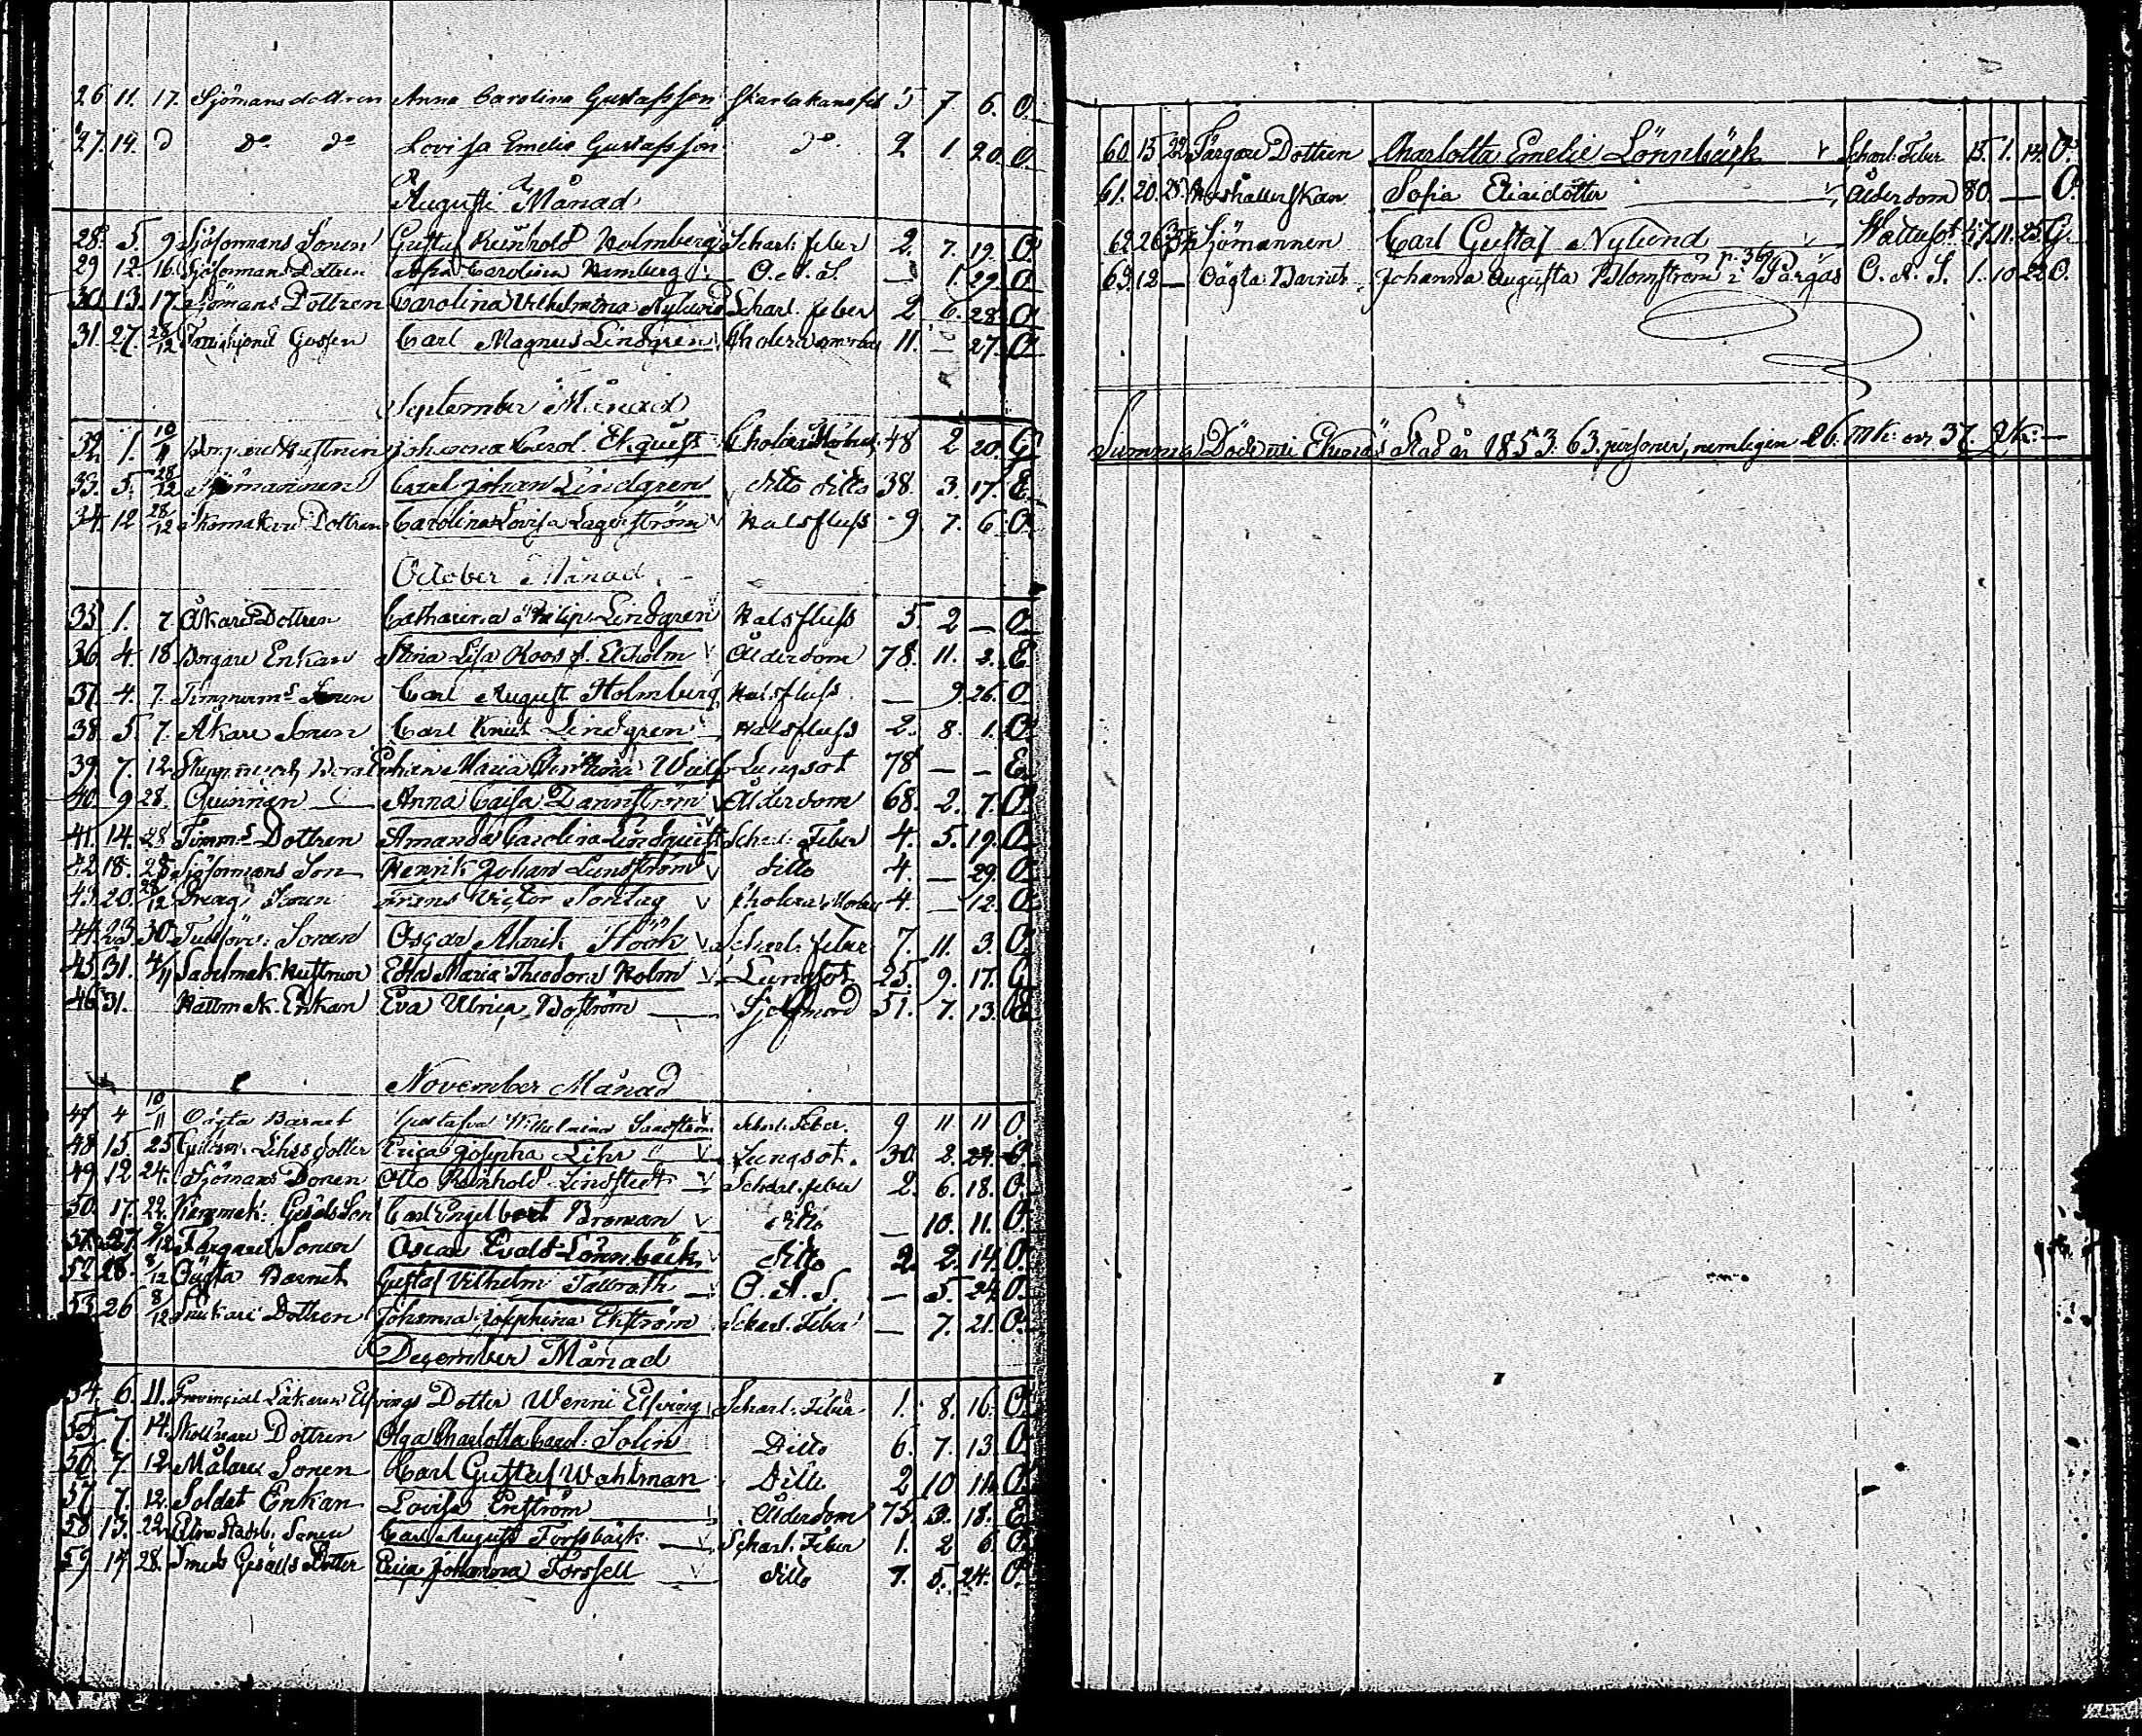 26 11. 17. Sjömans dottren Anna Carolina Gustafsson Skarlakansfeb 5 7. 6. O.
27. 19. D D:o D:o Lovisa Emelie Gustafsson D:o 2 1. 20. O.
Augusti Månad
28. 5. 9 Sjöformans Sonen Gustaf Reinhold Holmberg Scharl: feber 2. 7. 19. O.
29 12. 16. Sjöformans Dottren Sofia Carolina Hamberg O. A. S. — 1. 29. O.
30. 13. 17. Sjömans Dottren Carolina Vilhelmina Nylund Scharl. feber 2 6. 28. O.
31. 27. 28/12 Gossen Carl Magnus Lindgren Cholera morbus 11. — 27. O.
September Månad
32. 1. 10/11 Borgare Hustrun Johanna Carol. Ekqvist Cholera Morbus 48 2 20. G
33. 5. 28/12 Sjömannen Carl Johan Lindgren ditto ditto 38. 3. 17. E.
34. 12 28/12 Skomakare Dottren Carolina Lovisa Lagerström Halsfluss 9 7. 6. O.
October Månad
35 1. 7. Åkare Dottren Catharina Philip. Lindgren Halsfluss 5 2 — O.
36. 4. 18 Borgare Enkan Stina Lisa Roos f. Ekholm Ålderdom 78. 11. 2. E
37 4. 7. Timmerm:s Sonen Carl August Holmberg Halsfluss. — 9. 26. O.
38. 5. 7. Åkare Sonen Carl Knut Lindgren Halsfluss 2. 8. 1. O.
39 7. 12. Enkan Maria Wulf Lungsot 78 — — E.
40. 9 28. Qvinnan Anna Caisa Dannström Ålderdom 68. 2. 7. O.
41. 14. 28 Timm:s Dottren Amanda Carolina Lindqvist Scharl. Feber 4. 5. 19. O.
42 18. 28 Sjöformans Son Henrik Johan Lundström ditto 4. — 29. O.
43 20. 28/12 Sonen Frans Victor Sontag Cholera Morbus 4. — 12. O.
44. 23 30. Sonen Oscar Alarik Höök Scharl. feber 7. 11. 3. O.
45. 31. 4/11 Sadelmak. Hustrun Edla Maria Theodora Holm Lungsot 25. 9. 17. G.
46 31. Hattmak. Enkan Eva Ulrica Boström Sjelfmord 51. 7. 13. E
November Månad
47 4 10/11 Oägta Barnet Gustafva Wilhelmina Sundström Scharl. Feber. 9 11 11 O.
48 15. 25 Lihrs dotter Erica Josepha Lihr Lungsot. 30. 2. 27. O.
49 12 24. Sjömans Sonen Otto Reinhold Lindstedt Scharl. feber 2. 6. 18. O.
50. 17. 22. Gesälls Son Carl Engelbert Broman ditto — 10. 11. O.
51. 27 9/12 Färgare Sonen Oscar Evald Lönnbeck ditto 2. 2. 14. O.
52 28. 8/12 Oägta Barnet Gustaf Vilhelm Tallroth O. A. S. — 5. 24. O.
53 26 8/12 Snickare Dottren Johanna Josephina Ekström Scharl. Feber — 7. 21. O.
December Månad
54. 6. 11. Provincial Läkaren Elfvings Dotter Wenni Elfving Scharl. Feber 1. 8. 16. O.
55. 7. 14. Dottren Olga Charlotta Carol. Solin Ditto 6. 7. 13 O.
56. 7. 12. Målare Sonen Carl Gustaf Wahlman Ditto 2 10 11. O.
57 7. 12. Soldat Enkan Lovisa Enström Ålderdom 75. 3. 18. E
58 13. 22. Sonen Carl August Forssbäck Scharl. Feber 1. 2 6 O.
59 17. 28. Smeds Gesälls Dotter Erica Johanna Forssell ditto 7. 5. 24. O.
60. 15 22 Färgare Dottren Charlotta Emelie Lönnbäck Scharl. Feber 15. 1. 14. O.
61. 20. 28 Hushållerskan Sofia Eliaedotter Ålderdom 80. — O.
62 26 Sjömannen Carl Gustaf Nylund Wattusot 47. 11. 25. G.
63. 12 — Oägta Barnet Johanna Augusta Blomström p. 36 i Pargas O. A. S. 1. 10. 22. O.
Summa Döde uti Ekenäs Stad år 1853: 63. personer, nemligen 26. Mk: och 37. Qk: —